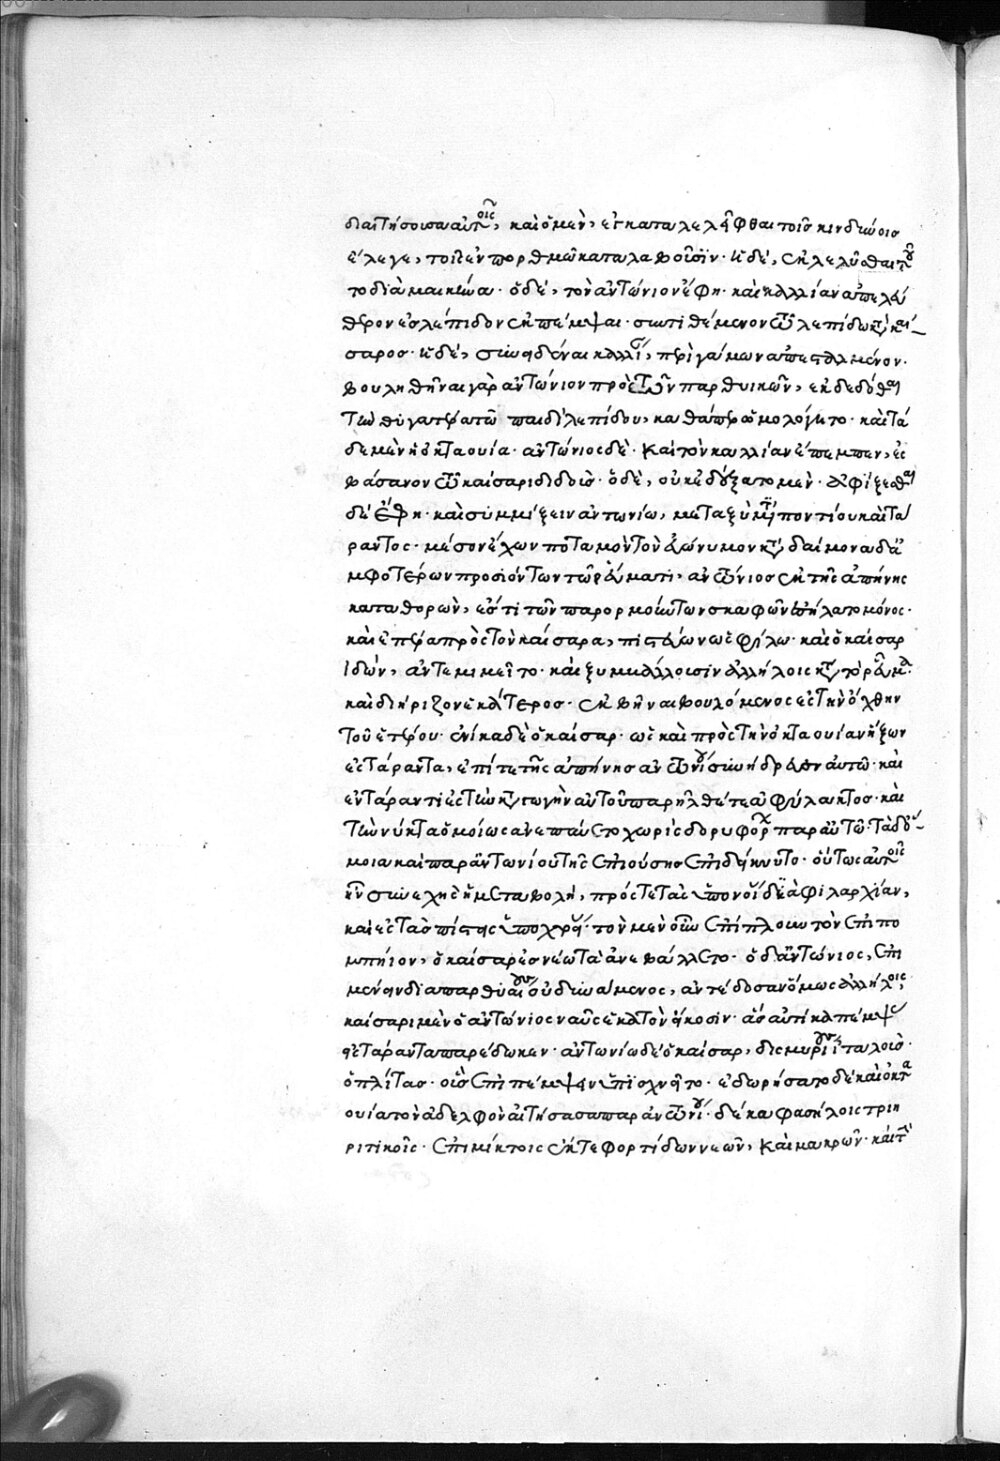 διαιτήσουσα αὐτοῖς, καὶ ὁ μὲν, ἐγκαταλελεῖφθαι τοῖς κινδύνοις
ἔλεγε, τοῖς ἐν πορθμῶ καταλαβοῦσιν· ἡ δὲ, ἐκλελύσθαι τοῦ
το διὰ μαικήνα· ὁ δὲ, τὸν ἀντώνιον ἔφη· καὶ καλλίαν ἀπελεύ
θερον ἐς λέπιδον ἐκπέμψαι· συντιθέμενον τῶ λεπίδω κατὰ καί-
σαρος· ἡ δὲ, συνειδέναι καλλίαν, περὶ γάμων ἀπεσταλμένον·
βουληθῆναι γὰρ ἀντώνιον πρὸ τῶν παρθυικῶν, ἐκδεδόσθαι
τὴν θυγατέρα τῶ παιδὶ λεπίδου, καθάπερ ὡμολόγητο· καὶ τά
δε μὲν ἡ ὀκταουία· ἀντώνιος δὲ· καὶ τὸν καλλίαν ἔπεμπεν, ἐς
βάσανον τῶ καίσαρι διδοὺς· ὁ δὲ, οὐκ ἐδέξατο μὲν· ἀφίξεσθαι
δὲ ἔφη· καὶ συμμίξειν ἀντωνίω, μεταξὺ μεταποντίου καὶ τά
ραντος· μέσον ἔχων ποταμὸν τὸν ἐπώνυμον κατὰ δαίμονα δὲ ἀ
μφοτέρων προσιόντων τῶ ῥεύματι, ἀντώνιος ἐκ τῆς ἀπήνης
καταθορὼν, ἔς τι τῶν παρορμούντων σκαφῶν ἐσήλατο μόνος·
καὶ ἐπέρα πρὸς τὸν καίσαρα, πιστεύων ὡς φίλω· καὶ ὁ καῖσαρ
ἰδὼν, ἀντεμιμεῖτο· καὶ ξυμβάλλουσιν ἀλλήλοις κατὰ τὸ ῥεῦμα·
καὶ διήριζον ἑκάτερος· ἐκβῆναι βουλόμενος ἐς τὴν ὄχθην
τοῦ ἑτέρου· ἐνίκα δὲ ὁ καῖσαρ· ὡς καὶ πρὸς τὴν ὀκταουίαν ἥξων
ἐς τάραντα, ἐπί τε τῆς ἀπήνης ἀντωνίου συνήδρευεν αὐτῶ· καὶ
ἐν τάραντι ἐς τὴν καταγωγὴν αὐτοῦ παρῆλθέ τε ἀφύλακτος· καὶ
τὴν νύκτα ὁμοίως ἀνεπαύετο χωρὶς δορυφόρων παρ' αὐτῶ· τὰ δ' ὅ-
μοια καὶ παρ' ἀντωνίου τῆς ἐπιούσης ἐπεδείκνυτο· οὕτως αὐτοῖς
ἦν συνεχὴς ἡ μεταβολὴ, πρός τε τὰς ὑπονοίας διὰ φιλαρχίαν,
καὶ ἐς τὰς πίστεις ὑπὸ χρείας· τὸν μὲν οὖν ἐπίπλουν τὸν ἐπὶ πο
μπήιον, ὁ καῖσαρ ἐς νέωτα ἀνεβάλλετο· ὁ δ' ἀντώνιος, ἐπι
μένειν διὰ παρθυαίους οὐ δυνάμενος, ἀντέδοσαν ὅμως ἀλλήλοις,
καίσαρι μὲν ὁ ἀντώνιος ναῦς ἑκατὸν εἴκοσιν· ἃς αὐτίκα πέμψας
εἰς τάραντα παρέδωκεν· ἀντωνίω δὲ ὁ καῖσαρ, δισμυρίους ἰταλοὺς·
ὁπλίτας· οὓς ἐπιπέμψειν ὑπισχνεῖτο· ἐδωρήσατο δὲ καὶ ὀκτα
ουία τὸν ἀδελφὸν αἰτήσασα παρ' ἀντωνίου· δέκα φασήλοις τριη
ριτικοῖς· ἐπιμίκτοις ἔκ τε φορτίδων νεῶν, καὶ μακρῶν· καὶ τὴν